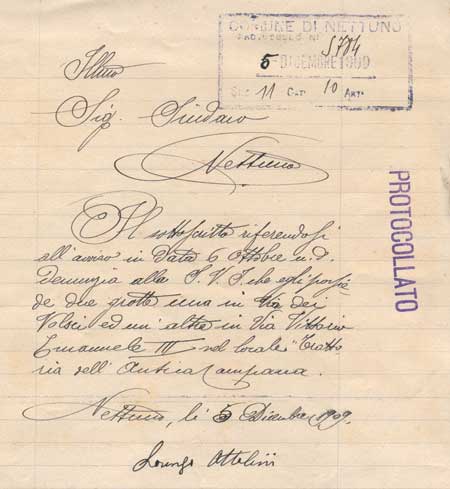 COMUNE DI NETTUNO
PROTOCOLLO N. 5784
5 DICEMBRE 1909
Cat. 10 Art.
Illmo
Sig. Sindaco
Nettuno
PROTOCOLLATO
Il sottoscritto riferendosi
all'avviso in data 6 Ottobre u.d.
denunzia alla S.V.I. che egli possie
de due grotte una in Via dei
Volsci ed un'altra in Via Vittorio
Emanuele III nel locale "Tratto
ria dell'Antica Campana.
Nettuno, li 5 Dicembre 1909.
Ottolini